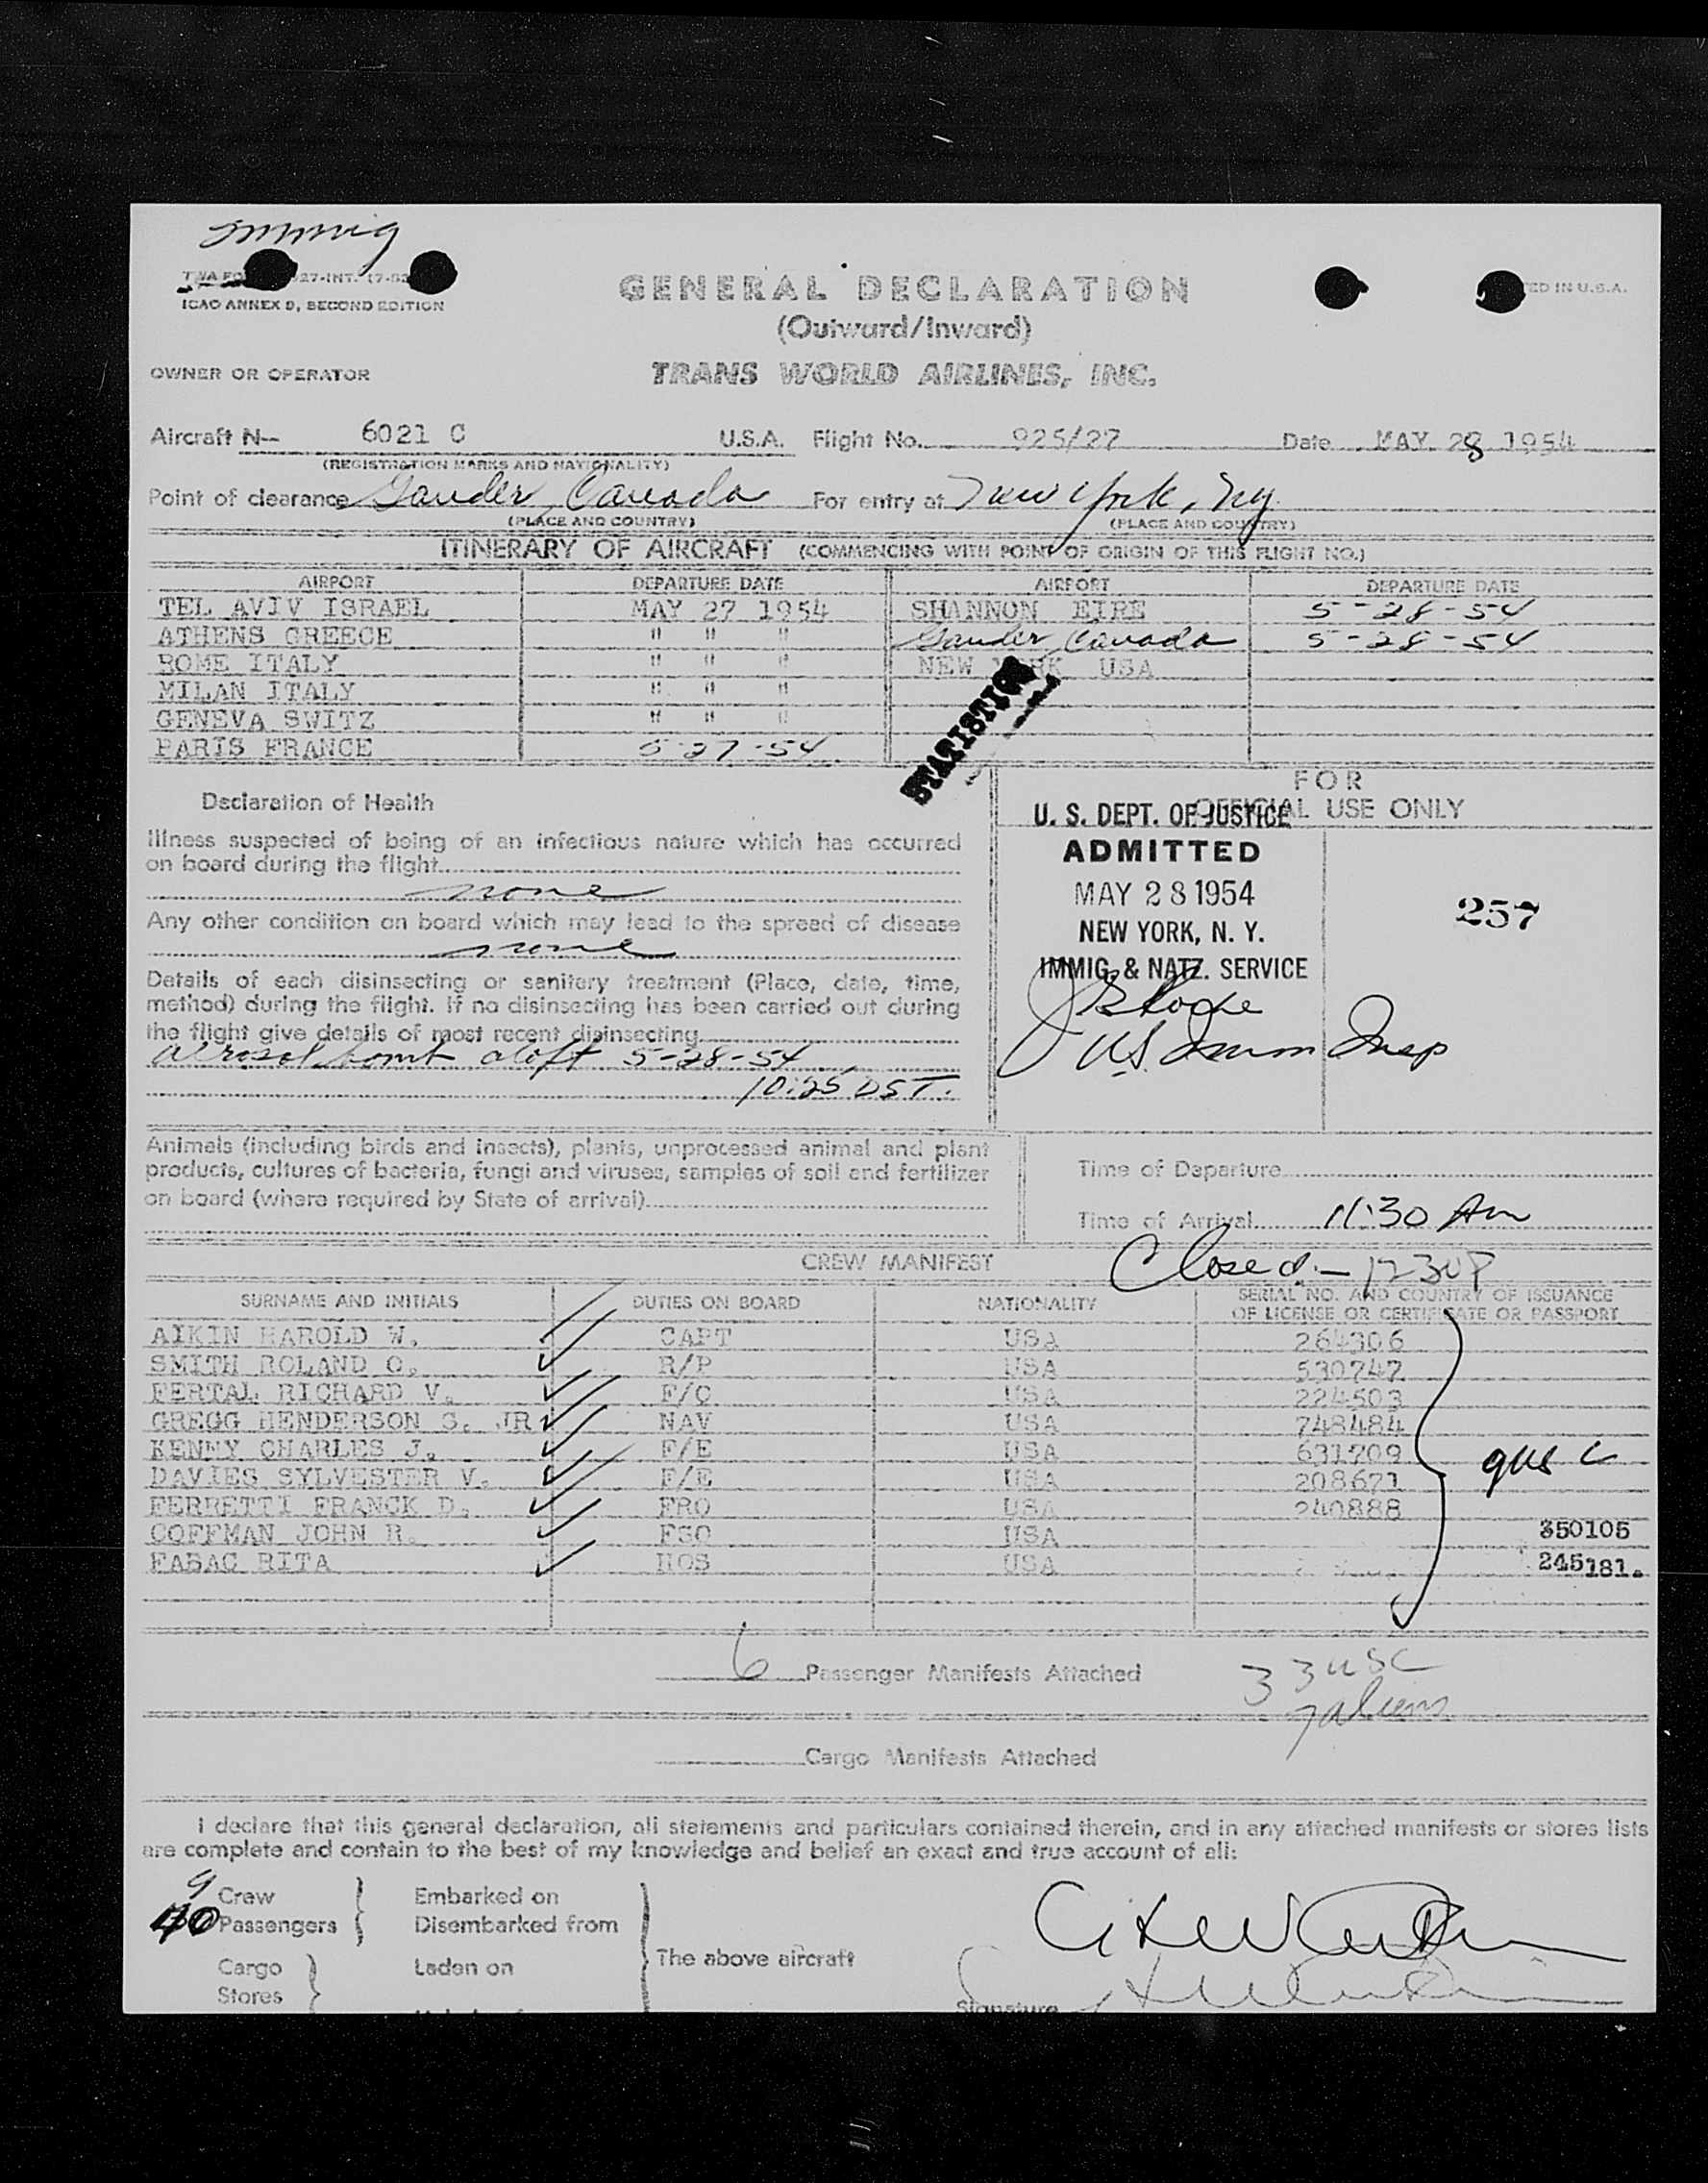 Immig
TWA FO 27-INT. (7-52
ICAO ANNEX 9, SECOND EDITION
GENERAL DECLARATION
ED IN U.S.A.
(Outward/Inward)
OWNER OR OPERATOR
TRANS WORLD AIRLINES, INC.
Aircraft N-- 6021 C U.S.A. Flight No. 925/27 Date MAY 28 1954
(REGISTRATION MARKS AND NATIONALITY)
Point of clearance Gander, Canada For entry at New York, NY.
(PLACE AND COUNTRY) (PLACE AND COUNTRY)
ITINERARY OF AIRCRAFT (COMMENCING WITH POINT OF ORIGIN OF THIS FLIGHT NO.)
AIRPORT DEPARTURE DATE AIRPORT DEPARTURE DATE
TEL AVIV ISRAEL MAY 27 1954 SHANNON EIRE 5-28-54
ATHENS GREECE " " " Gander, Canada 5-28-54
ROME ITALY " " " NEW YORK USA
MILAN ITALY " " "
GENEVA SWITZ " " "
PARIS FRANCE 5-27-54
STATISTICS
Declaration of Health
Illness suspected of being of an infectious nature which has occurred
on board during the flight
none
Any other condition on board which may lead to the spread of disease
none
Details of each disinsecting or sanitary treatment (Place, date, time,
method) during the flight. If no disinsecting has been carried out during
the flight give details of most recent disinsecting
aerosol bomb aloft 5-28-54
10:25 DST.
FOR
OFFICIAL USE ONLY
U. S. DEPT. OF JUSTICE
ADMITTED
MAY 28 1954
NEW YORK, N. Y.
IMMIG. & NATZ. SERVICE
US Imm Insp
257
Animals (including birds and insects), plants, unprocessed animal and plant
products, cultures of bacteria, fungi and viruses, samples of soil and fertilizer
on board (where required by State of arrival)
Time of Departure
Time of Arrival 11:30 Am
Closed - 1230P
CREW MANIFEST
SURNAME AND INITIALS DUTIES ON BOARD NATIONALITY SERIAL NO. AND COUNTRY OF ISSUANCE
OF LICENSE OR CERTIFICATE OR PASSPORT
AIKIN HAROLD W. CAPT USA 264306
SMITH ROLAND O. R/P USA 530747
FERTAL RICHARD V. F/O USA 224503
GREGG HENDERSON S. JR NAV USA 748484
KENNY CHARLES J. F/E USA 631709
DAVIES SYLVESTER V. F/E USA 208671
FERRETTI FRANCK D. FRO USA 240888
COFFMAN JOHN R. FSO USA 350105
FABAC RITA HOS USA 245181.
9 US C
6 Passenger Manifests Attached
33 USC
7 aliens
Cargo Manifests Attached
I declare that this general declaration, all statements and particulars contained therein, and in any attached manifests or stores lists
are complete and contain to the best of my knowledge and belief an exact and true account of all:
9 Crew Embarked on
40 Passengers Disembarked from
The above aircraft
Cargo Laden on
Stores
Signature